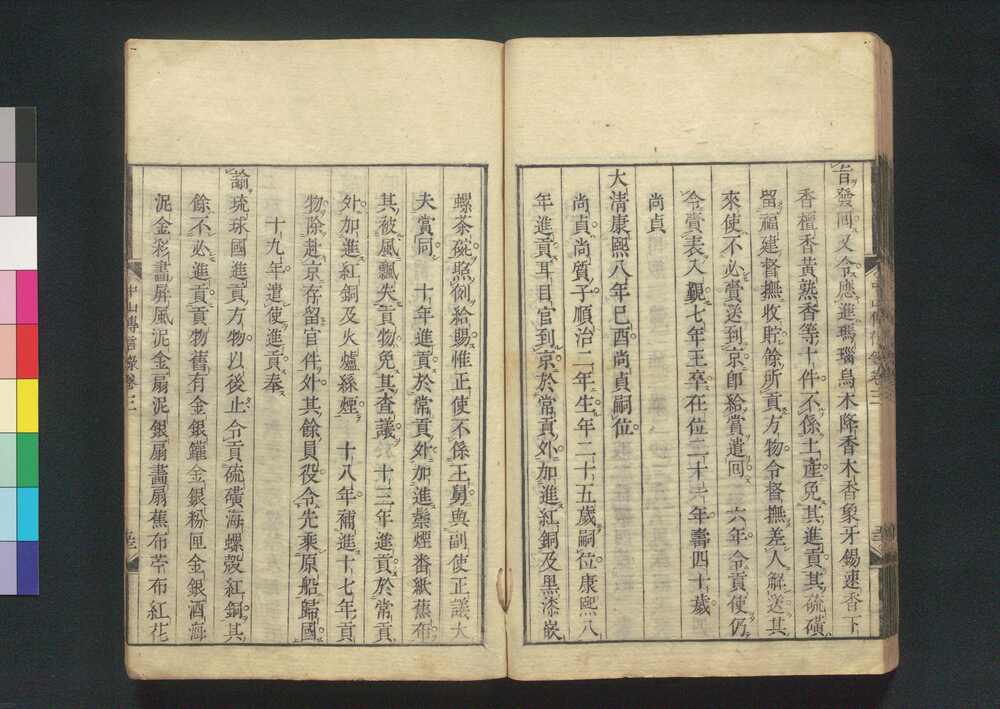 旨發回又令應進瑪瑙烏木降香木香象牙錫速香丁
香檀香黃熟香等十件不係土產免其進貢其硫磺
留福建督撫收貯餘所貢方物令督撫差人解送其
來使不必賫送到京即給賞遣回 六年令貢使仍
令賫表入覲七年王卒在位二十 年壽四十歲
尚貞
大清康熙八年己酉尚貞嗣位
尚貞尚質子順治二年生年二十五歲嗣位康熙八
年進貢耳目官到京於常貢外加進紅銅及黑漆嵌
螺茶碗照例給賜惟正使不係王舅與副使正議大
夫賞同 十年進貢於常貢外加進鬃煙番紙蕉布
其被風飄失貢物免其查議 十三年進貢於常貢
外加進紅銅及火爐絲煙 十八年補進十七年貢
物除赴京存留官件外其餘員役令先乘原船歸國
十九年遣使進貢奉
諭琉球國進貢方物以後止令貢硫磺海螺殼紅銅其
餘不必進貢貢物舊有金銀鑵金銀粉匣金銀酒海
泥金彩畫屏風泥金扇泥銀扇畫扇蕉布苧布紅花
中山傳信錄卷三
中山傳信錄卷三